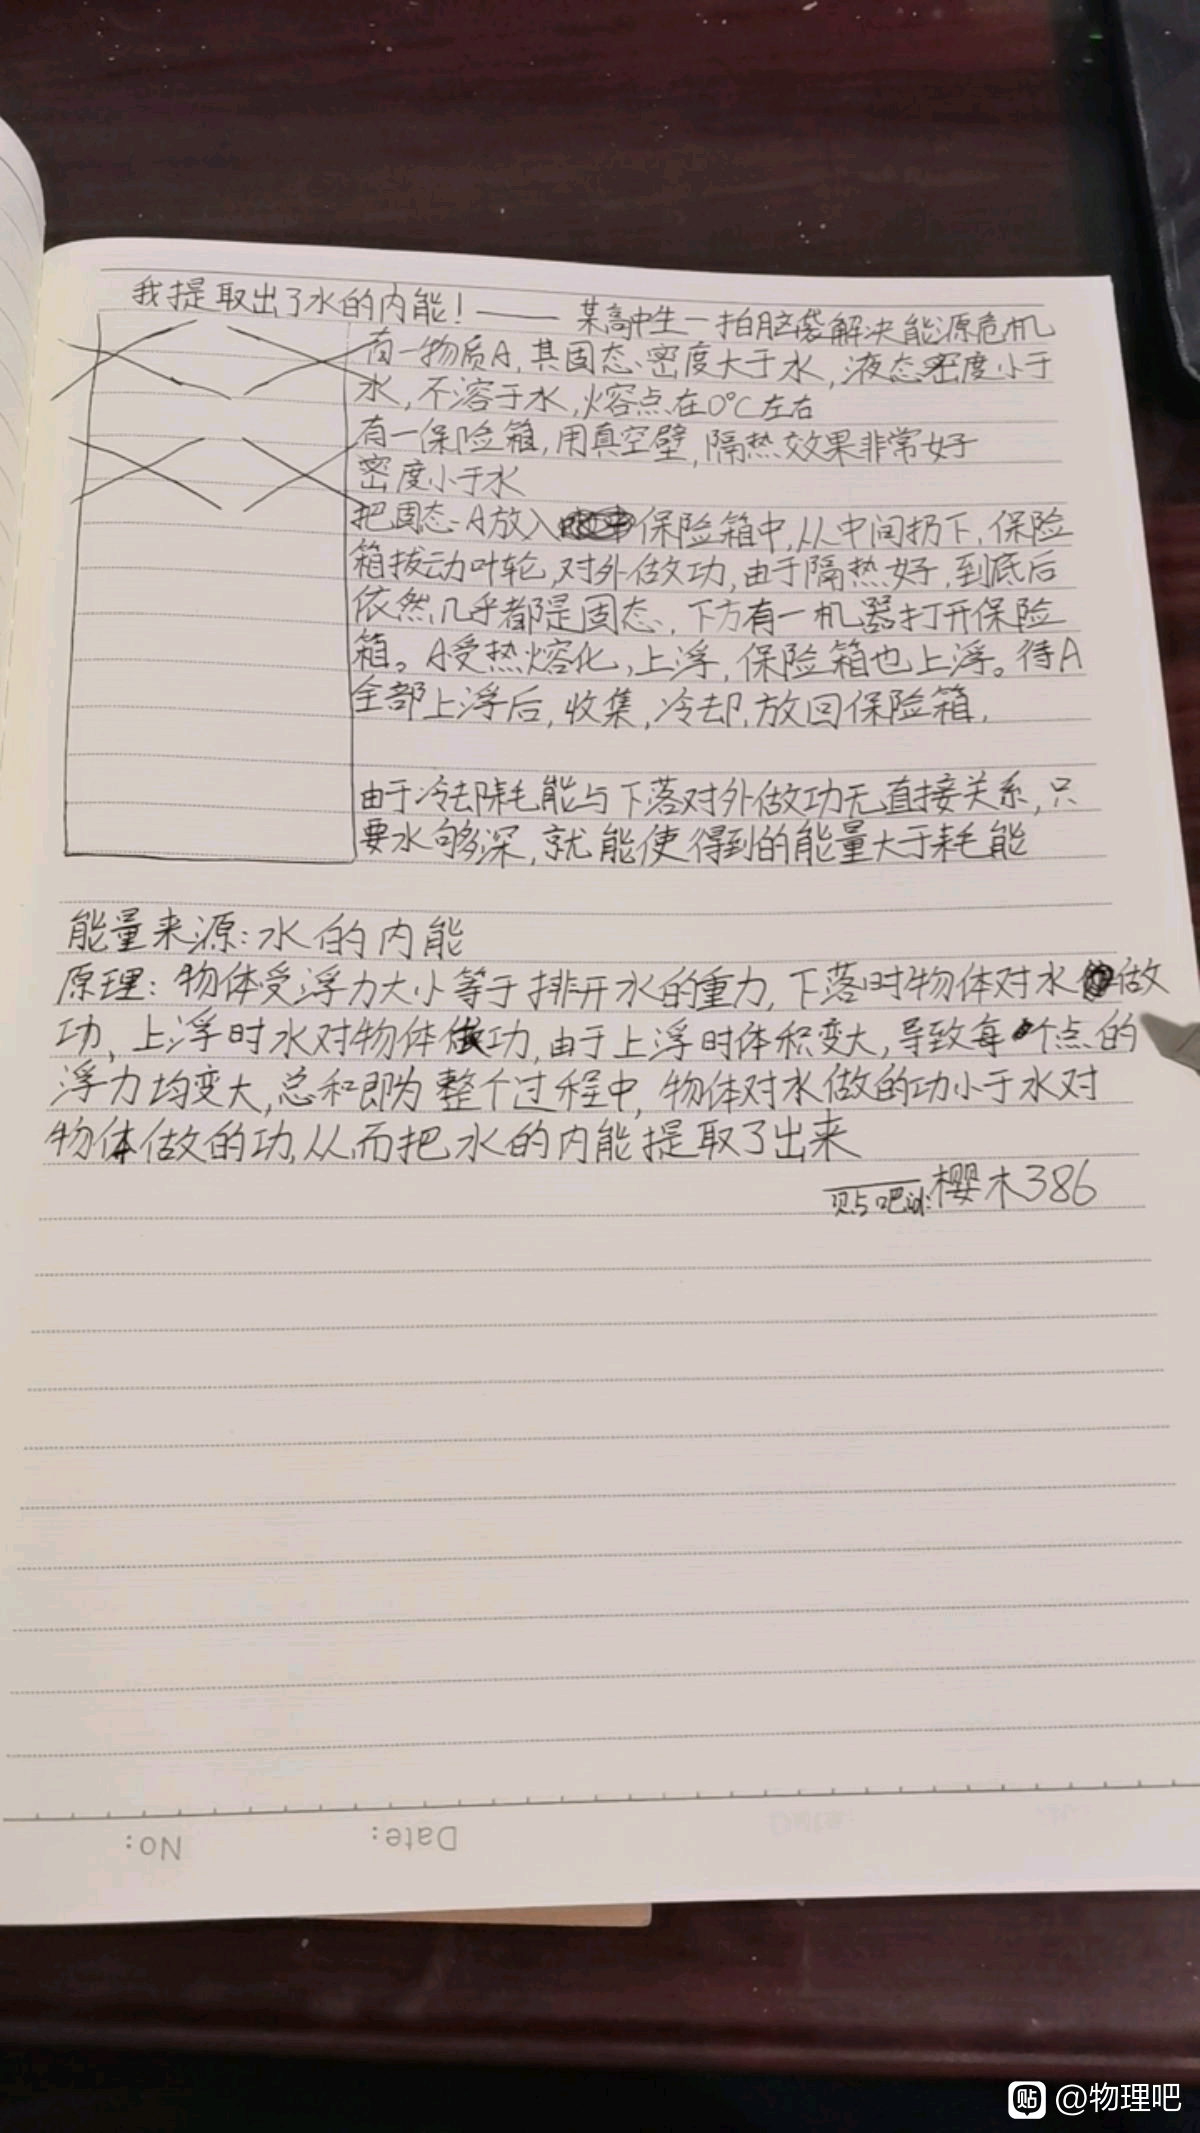 我提取出了水的内能！—— 某高中生一拍脑袋解决能源危机
有一物质A,其固态密度大于水,液态密度小于
水,不溶于水,熔点在0℃左右
有一保险箱,用真空壁,隔热效果非常好
密度小于水
把固态A放入保险箱中,从中间扔下,保险
箱拔动叶轮,对外做功,由于隔热好,到底后
依然几乎都是固态,下方有一机器打开保险
箱。A受热熔化,上浮,保险箱也上浮。待A
全部上浮后,收集,冷却,放回保险箱.
由于冷却耗能与下落对外做功无直接关系,只
要水够深,就能使得到的能量大于耗能
能量来源:水的内能
原理:物体受浮力大小等于排开水的重力,下落时物体对水做
功,上浮时水对物体做功,由于上浮时体积变大,导致每个点的
浮力均变大,总和即为整个过程中,物体对水做的功小于水对
物体做的功,从而把水的内能提取了出来
——贴吧id:樱木386
No:
Date:
贴 @物理吧